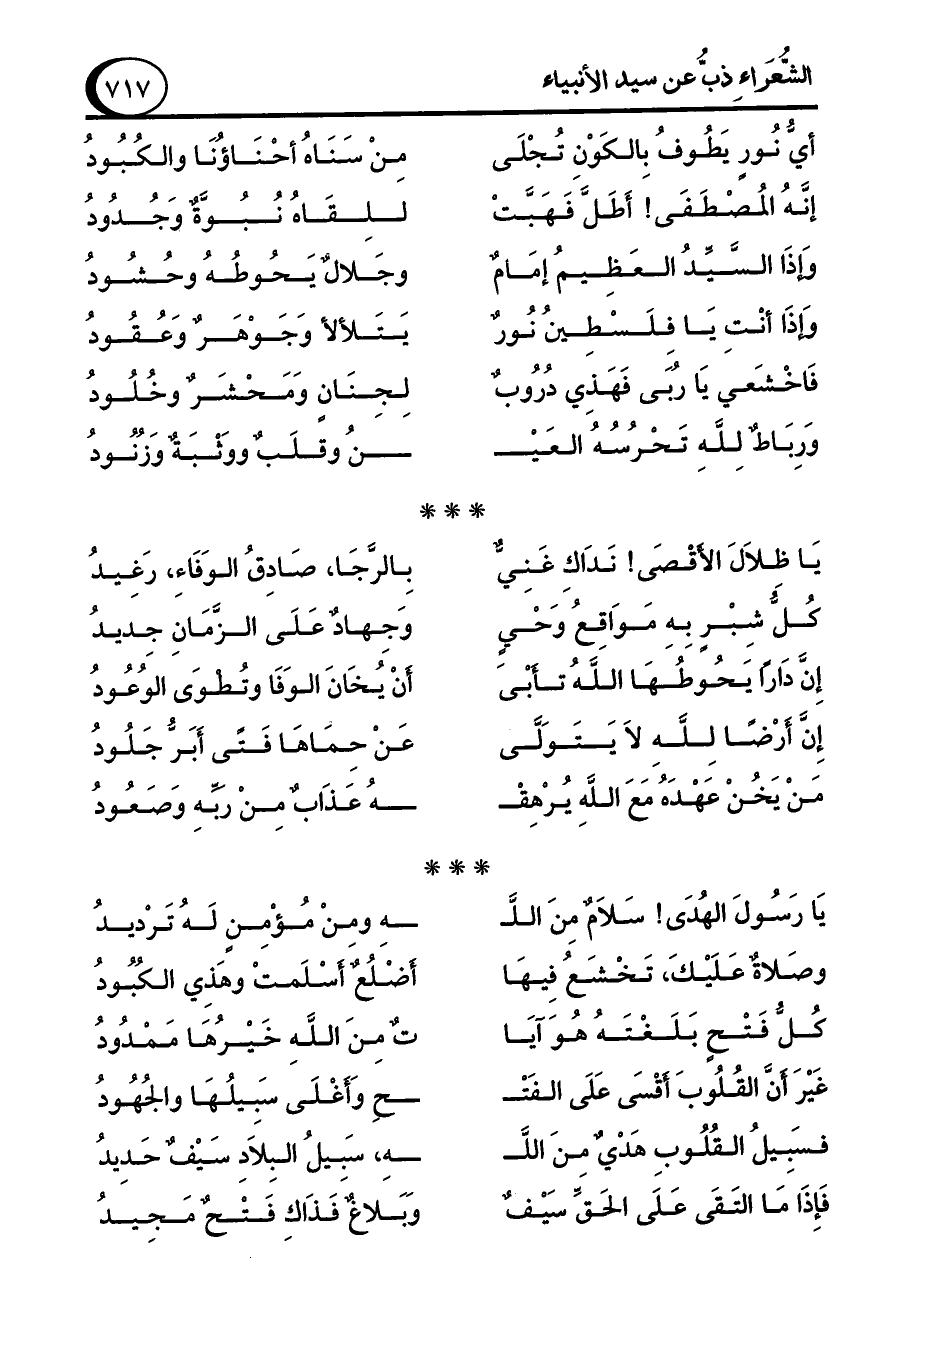 الشُّعَرَاءِ ذبُّ عن سيد الأنبياء ٧١٧
أيُّ نُورٍ يَطُوفُ بِالكَوْنِ تُجْلَى مِنْ سَنَاهُ أحْنَاؤُنَا والكُبُودُ
إنَّهُ المُصْطَفَى! أطَلَّ فَهَبَّتْ لِلِقَاهُ نُبُوةٌ وَجُدُودُ
وَإذَا السَّيِّدُ العَظِيمُ إمَامٌ وجَلالٌ يَحُوطُهُ وحُشُودُ
وَإذَا أنْتِ يَا فِلَسْطِينُ نُورٌ يَتَلألأ وَجَوْهَرٌ وَعُقُودُ
فَاخْشَعِي يَا رُبَى فَهَذِي دُرُوبٌ لِجِنَانٍ وَمَحْشَرٌ وخُلُودُ
وَرِبَاطٌ لِلَّهِ تَحْرُسُهُ العَيْـ ـنُ وقَلبٌ ووَثْبَةٌ وَزُنُودُ
* * *
يَا ظِلاَلَ الأَقْصَى! نَدَاكِ غَنِيٌّ بِالرَّجَا، صَادِقُ الوَفَاءِ، رَغِيدُ
كُلُّ شِبْرٍ بِهِ مَوَاقِعُ وَحْيٍ وَجِهَادٌ عَلَى الزَّمَانِ جِدِيدُ
إنَّ دَارًا يَحُوطُهَا اللَّهُ تَأبَىَ أنْ يُخَانَ الوَفَا وتُطْوَى الوعُودُ
إنَّ أرْضًا لِلَّهِ لاَ يَتَولَّى عَنْ حِمَاهَا فَتًى أبَرُّ جَلُودُ
مَنْ يَخُنْ عَهْدَهُ مَعَ اللَّهِ يُرْهِقْـ ـهُ عَذَابٌ مِنْ رَبِّهِ وَصَعُودُ
* * *
يَا رَسُولَ الهُدَى! سَلاَمٌ مِنَ اللَّـ ـهِ ومِنْ مُؤْمِنٍ لَهُ تَرْدِيدُ
وصَلاةٌ عَلَيْكَ، تَخْشَعُ فِيهَا أضْلُعٌ أسْلَمتْ وهَذِي الكبُودُ
كُلُّ فَتْحٍ بَلَغْتَهُ هُوَ آيَا تٌ مِنَ اللَّهِ خَيْرُهَا مَمْدُودُ
غَيْرَ أنَّ القُلُوبَ أقْسَى عَلَى الفَتْـ ـحِ وَأغْلَى سَبِيلُهَا والجُهُودُ
فَسَبِيلُ القُلُوبِ هَدْيٌ مِنَ اللَّـ ـهِ، سَبِيلُ البِلاَدِ سَيْفٌ حَدِيدُ
فَإذَا مَا التَقَى عَلَى الحَقِّ سَيْفٌ وَبَلاغٌ فَذَاكَ فَتْحٌ مَجِيدُ